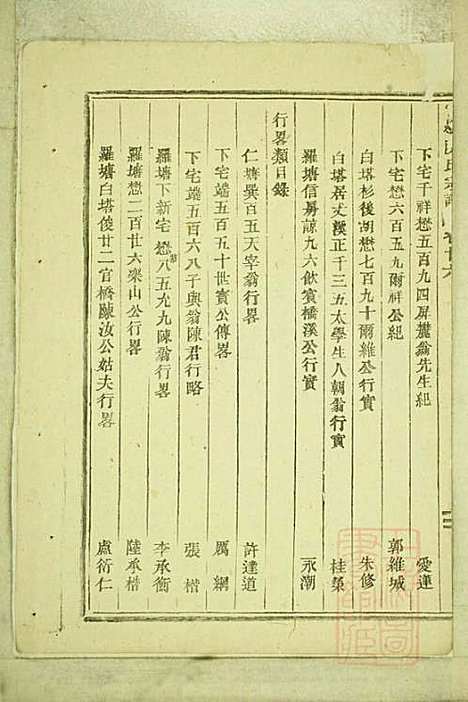 下宅千祥懋五百九四屏麓翁先生紀 愛蓮
下宅懋六百五九爾祥公紀 郭維城
白塔杉後胡懋七百九十爾維公行實 朱修
白塔居丈漢正千三五太學生人朝翁行實 桂槼
羅塘信房諒九六飲賓橋溪公行實 永潮
行畧類目錄
仁塘巽百五天宰翁行畧 許達道
下宅端五百五十世賓公傳畧 厲網
下宅端五百六八子與翁陳君行略 張楷
羅塘下新宅懋八五九九陳翁行畧 李承銜
羅塘懋二百廿六樂山公行畧 陸承楷
羅塘白塔俊廿二官橋陳汝公姑夫行畧 盧衍仁
氏宗譜 卷廿六